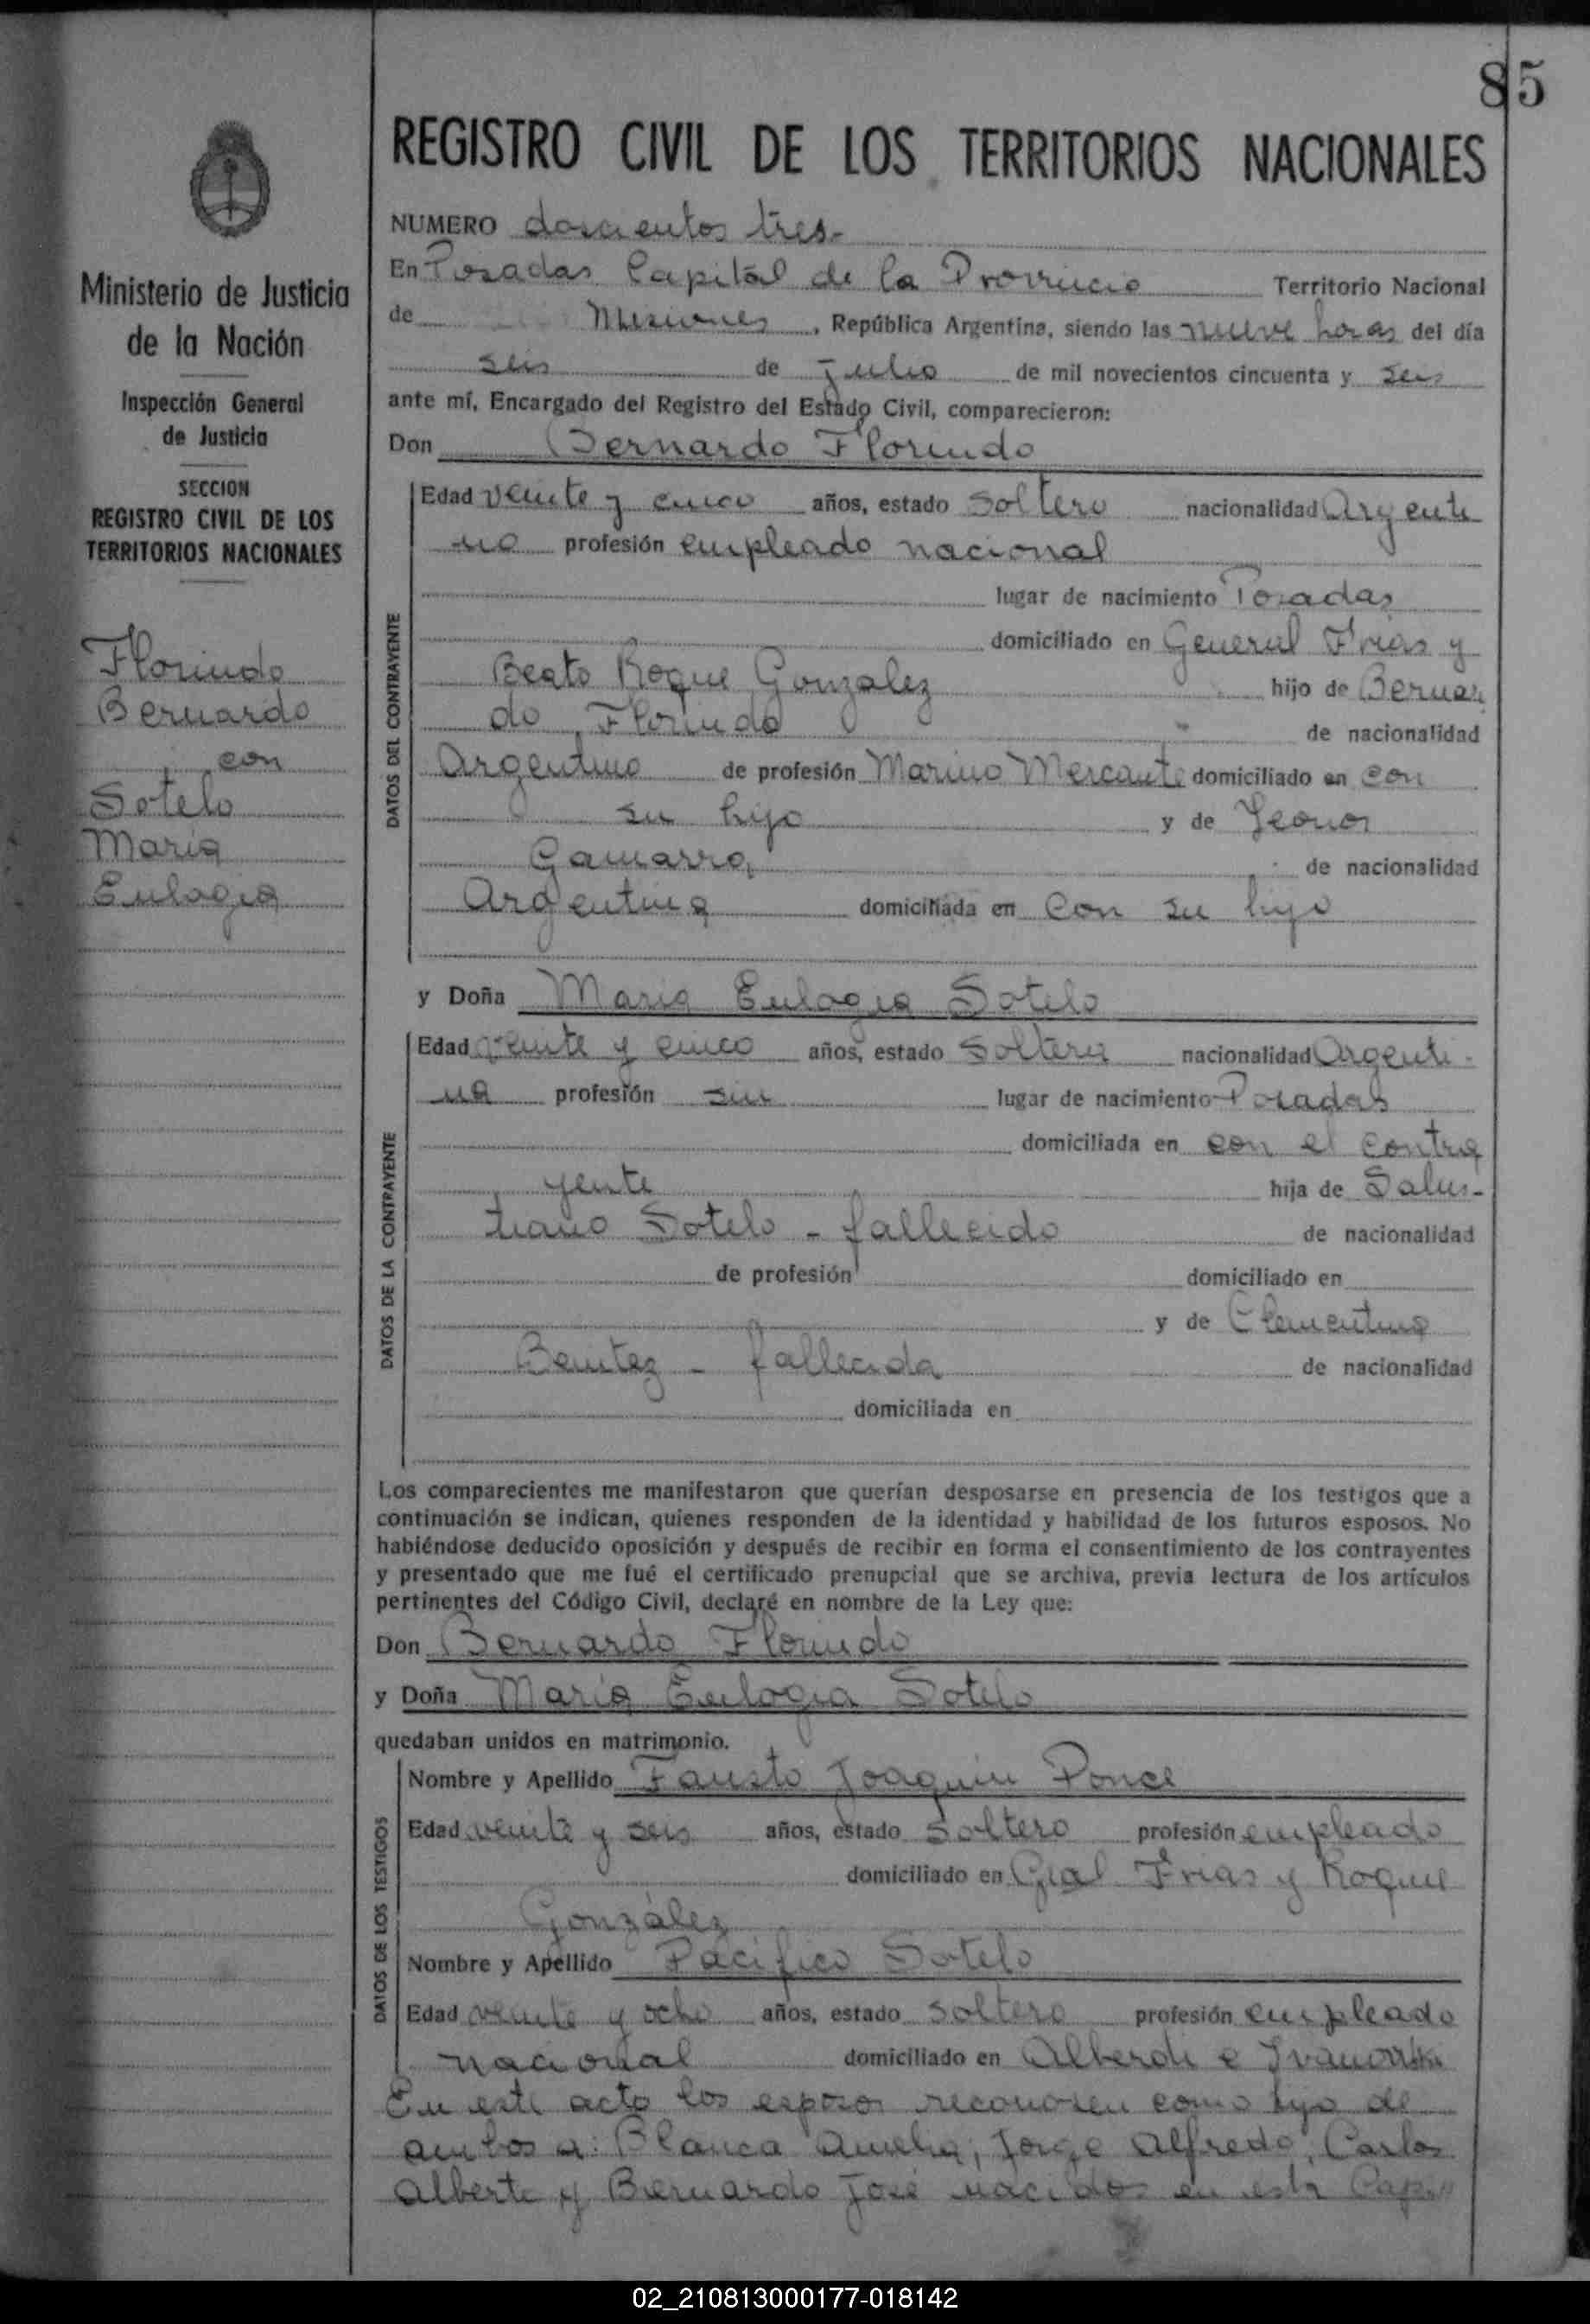 85
REGISTRO CIVIL DE LOS TERRITORIOS NACIONALES
Ministerio de Justicia
de la Nación
Inspección General
de Justicia
SECCION
REGISTRO CIVIL DE LOS
TERRITORIOS NACIONALES
Florindo
Bernardo
con
Sotelo
María
Eulogia
NUMERO doscientos tres.-
En Posadas Capitál de la Provincia Territorio Nacional
de Misiones, República Argentina, siendo las nueve horas del día
seis de julio de mil novecientos cincuenta y seis
ante mí, Encargado del Registro del Estado Civil, comparecieron:
Don Bernardo Florindo
DATOS DEL CONTRAYENTE
Edad veinte y cinco años, estado soltero nacionalidad Argenti
no profesión empleado nacional
lugar de nacimiento Posadas
domiciliado en General Frías y
Beato Roque Gonzalez hijo de Bernar
do Florindo de nacionalidad
Argentino de profesión Marino Mercante domiciliado en con
su hijo y de Leonor
Gamarra, de nacionalidad
Argentina domiciliada en con su hijo
y Doña María Eulogia Sotelo
DATOS DE LA CONTRAYENTE
Edad veinte y cinco años, estado soltera nacionalidad Argenti-
na profesión sin lugar de nacimiento Posadas
domiciliada en con el contra
yente hija de Salus-
tiano Sotelo - fallecido de nacionalidad
de profesión domiciliado en
y de Clementina
Benitez - fallecida de nacionalidad
domiciliada en
Los comparecientes me manifestaron que querían desposarse en presencia de los testigos que a
continuación se indican, quienes responden de la identidad y habilidad de los futuros esposos. No
habiéndose deducido oposición y después de recibir en forma el consentimiento de los contrayentes
y presentado que me fué el certificado prenupcial que se archiva, previa lectura de los artículos
pertinentes del Código Civil, declaré en nombre de la Ley que:
Don Bernardo Florindo
y Doña María Eulogia Sotelo
quedaban unidos en matrimonio.
DATOS DE LOS TESTIGOS
Nombre y Apellido Fausto Joaquin Ponce
Edad veinte y seis años, estado soltero profesión empleado
domiciliado en Gral Frias y Roque
González
Nombre y Apellido Pacífico Sotelo
Edad veinte y ocho años, estado soltero profesión empleado
nacional domiciliado en Alberdi e
En este acto los esposos reconosen como hijo de
ambos a: Blanca Amelia; Jorge Alfredo; Carlos
Alberto y Bernardo José nacidos en esta
02_210813000177-018142